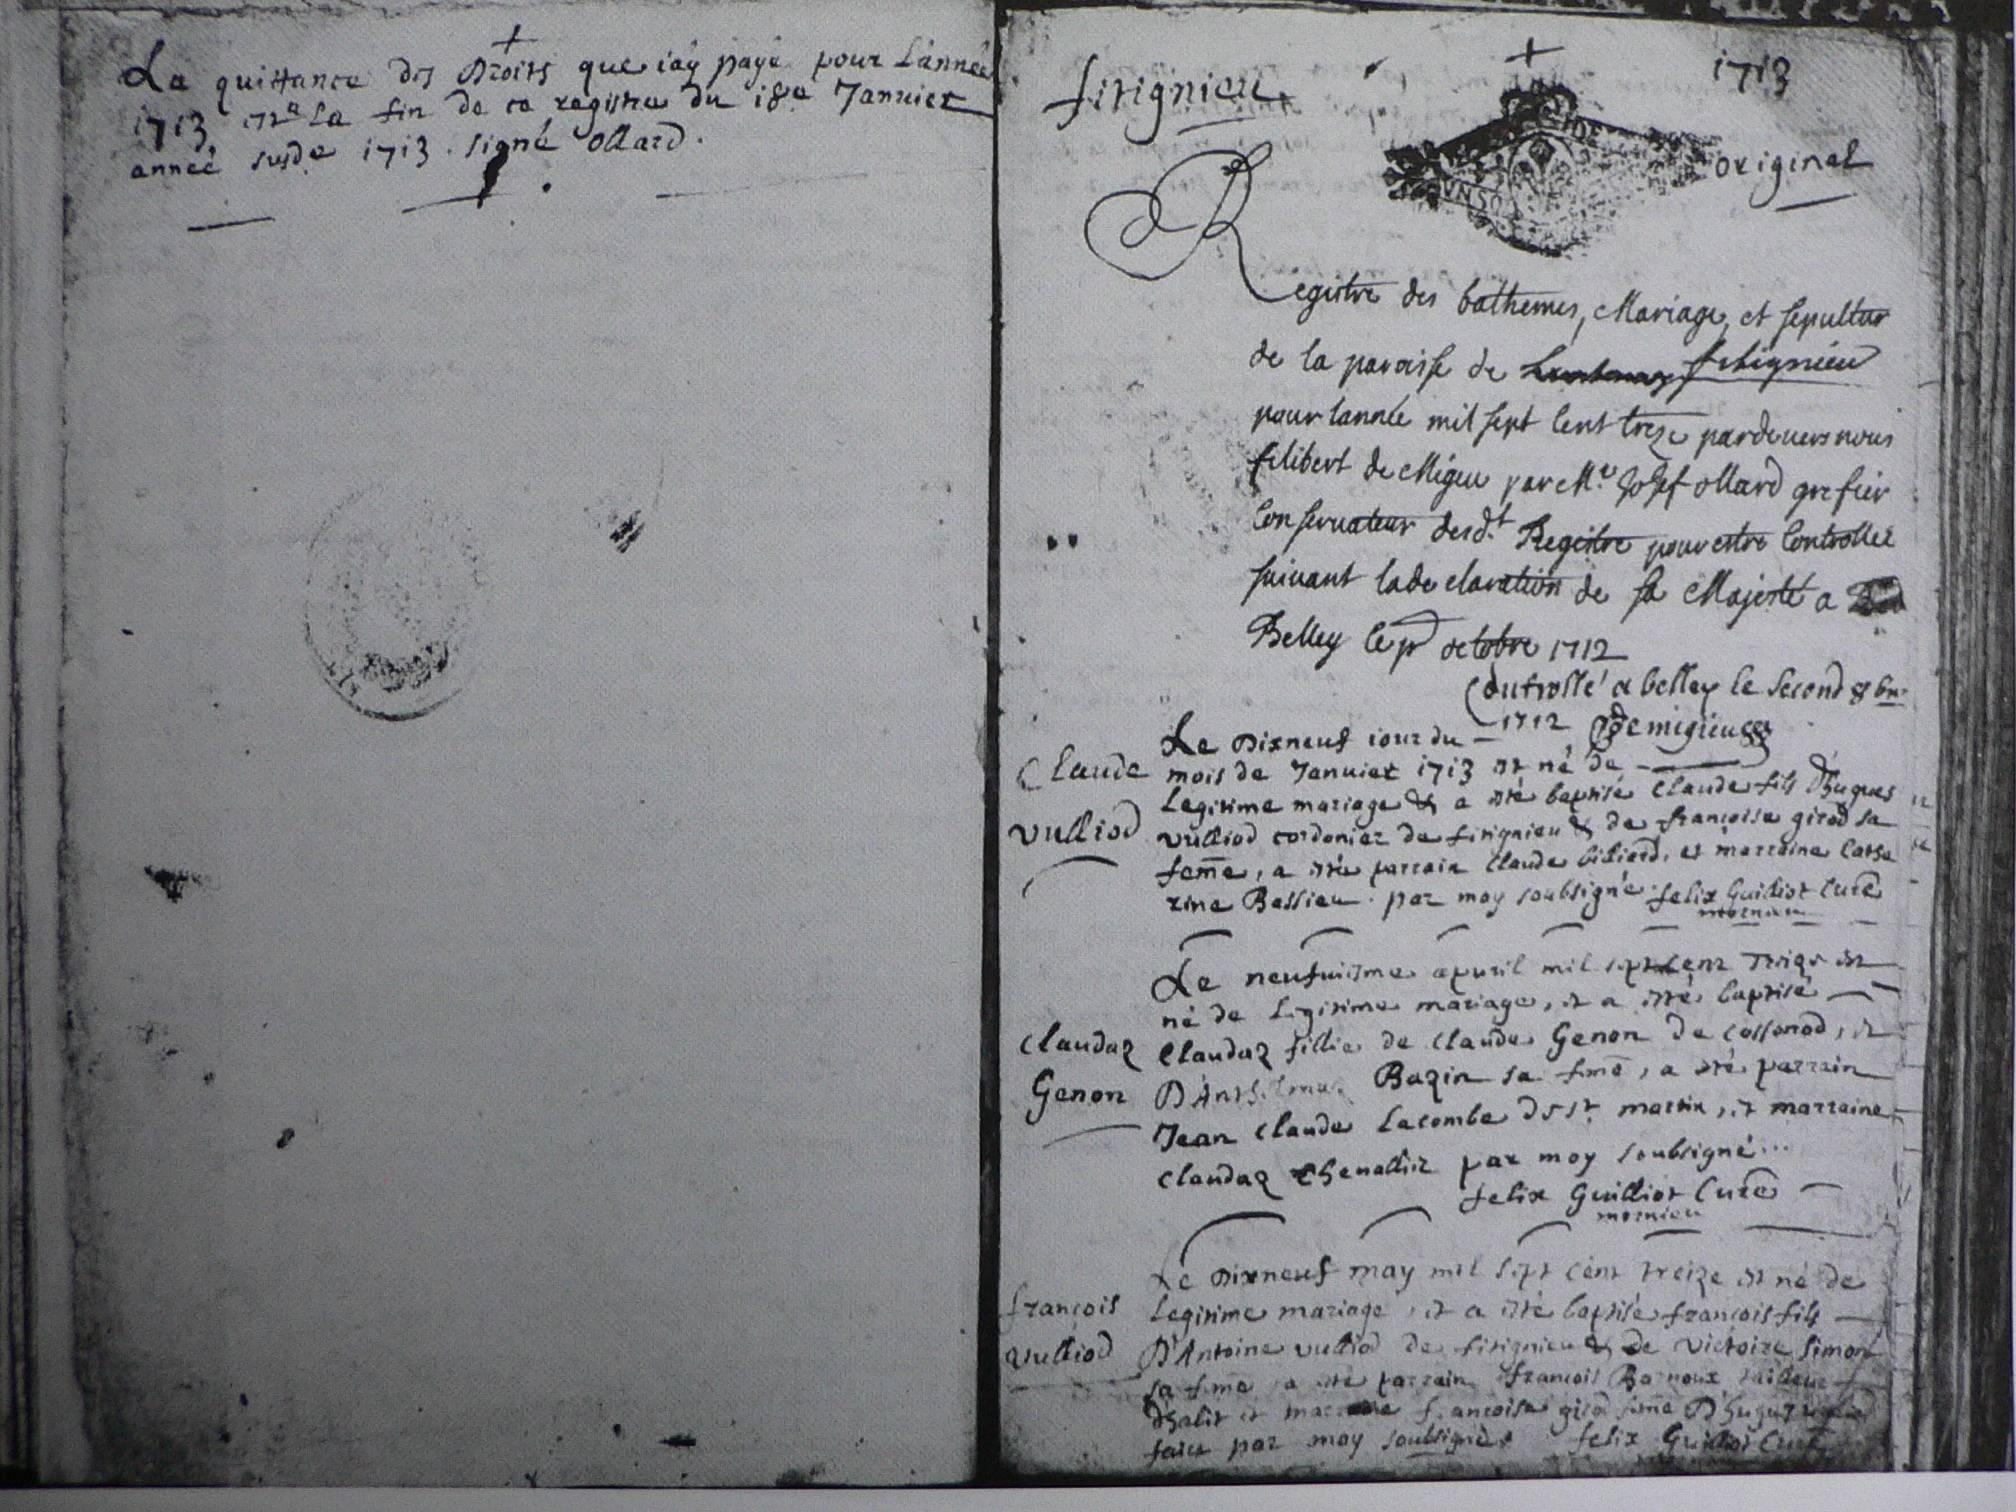 +
La quittance des Droits que iaÿ payé pour Lánnée
1713, est a la fin de ce registre du 18e Januier
année susde 1713. signé Ollard.
+
1713
fitignieu
original
Registre des bathemes, Mariage, et sepultur
de la paroisse de fitignieu
pour lannée mil sept Cent treze pardeuers nous
filibert de Migieu par Me Josef ollard grefier
Conseruateur desd.t Regitre pour estre Controllee
suiuant la declaration de sa Majesté a
Belley le pr octobre 1712
Controllé a belley le second 8bre
1712 demigieu
Le Dixneuf iour du
mois de Januier 1713 est né de
Legitime mariage & a esté baptisé Claude fils d'hugues
vulliod cordonier de fitignieu & de françoise girod sa
fem̄e, a esté parrain Claude billiard, et marraine Cathe
rine Bessieu. par moy soubsigné. felix Guilliot Curé
mornieu
Claude
vulliod
Le neufuiesme apuril mil sept Cent Treize est
né de Legitime mariage, et a esté baptisé
Claudaz fillie de Claude Genon de cossonod, et
D'Anthelmaz Bazin sa fem̄e, a esté parrain
Jean Claude Lacombe de St martin, et marraine
Claudaz Cheuallier par moy soubsigné...
felix Guilliot Curé
mornieu
Claudaz
Genon
Le Dixneuf may mil sept Cent treize est né de
Legitime mariage, et a esté baptisé françois fils
D'Antoine vulliod de fitignieu & de Victoire Simon
sa fem̄e a esté parrain françois Barnoux tailleur
d'habit et marraine françoise girod fem̄e D'hugue
faict par moy soubsigné felix Guilliot Curé
françois
vulliod